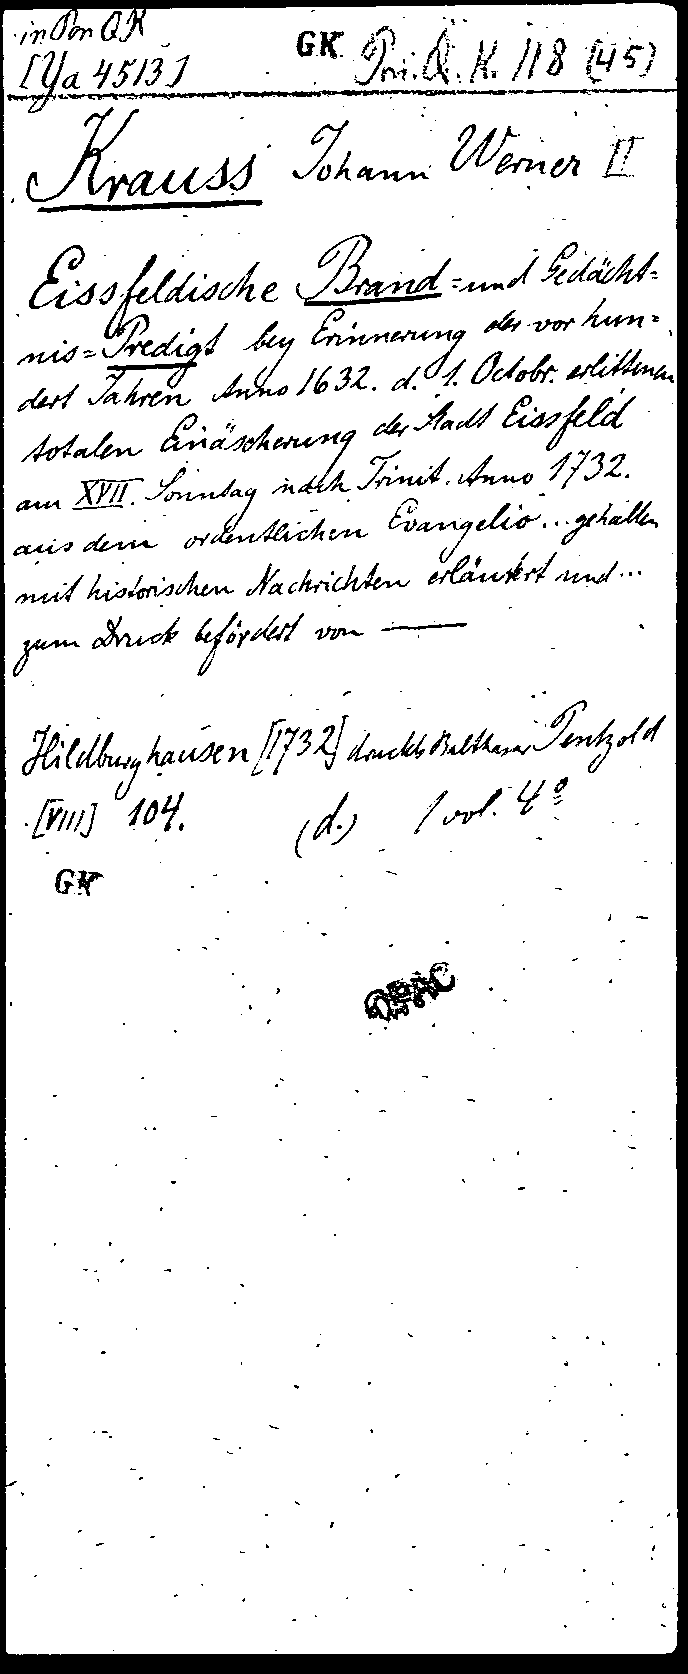 in Pon QK
[Ya 4513]
GK Pon. Q. K. 118 (45)
Krauss Johann Werner II
Eissfeldische Brand= und Gedächt=
nis=Predigt bey Erinnerung der vor hun=
dert Jahren Anno 1632. d. 1. Octobr. erlittenen
totalen Einäscherung der Stadt Eissfeld
am XVII. Sonntag nach Trinit. Anno 1732.
aus dem ordentlichen Evangelio... gehalten
mit historischen Nachrichten erläutert und...
zum Druck befördert von ——
Hildburghausen [1732] druckts Balthasar Pentzold
[VIII] 104. (d.) 1 vol. 4º
GK
OPAC